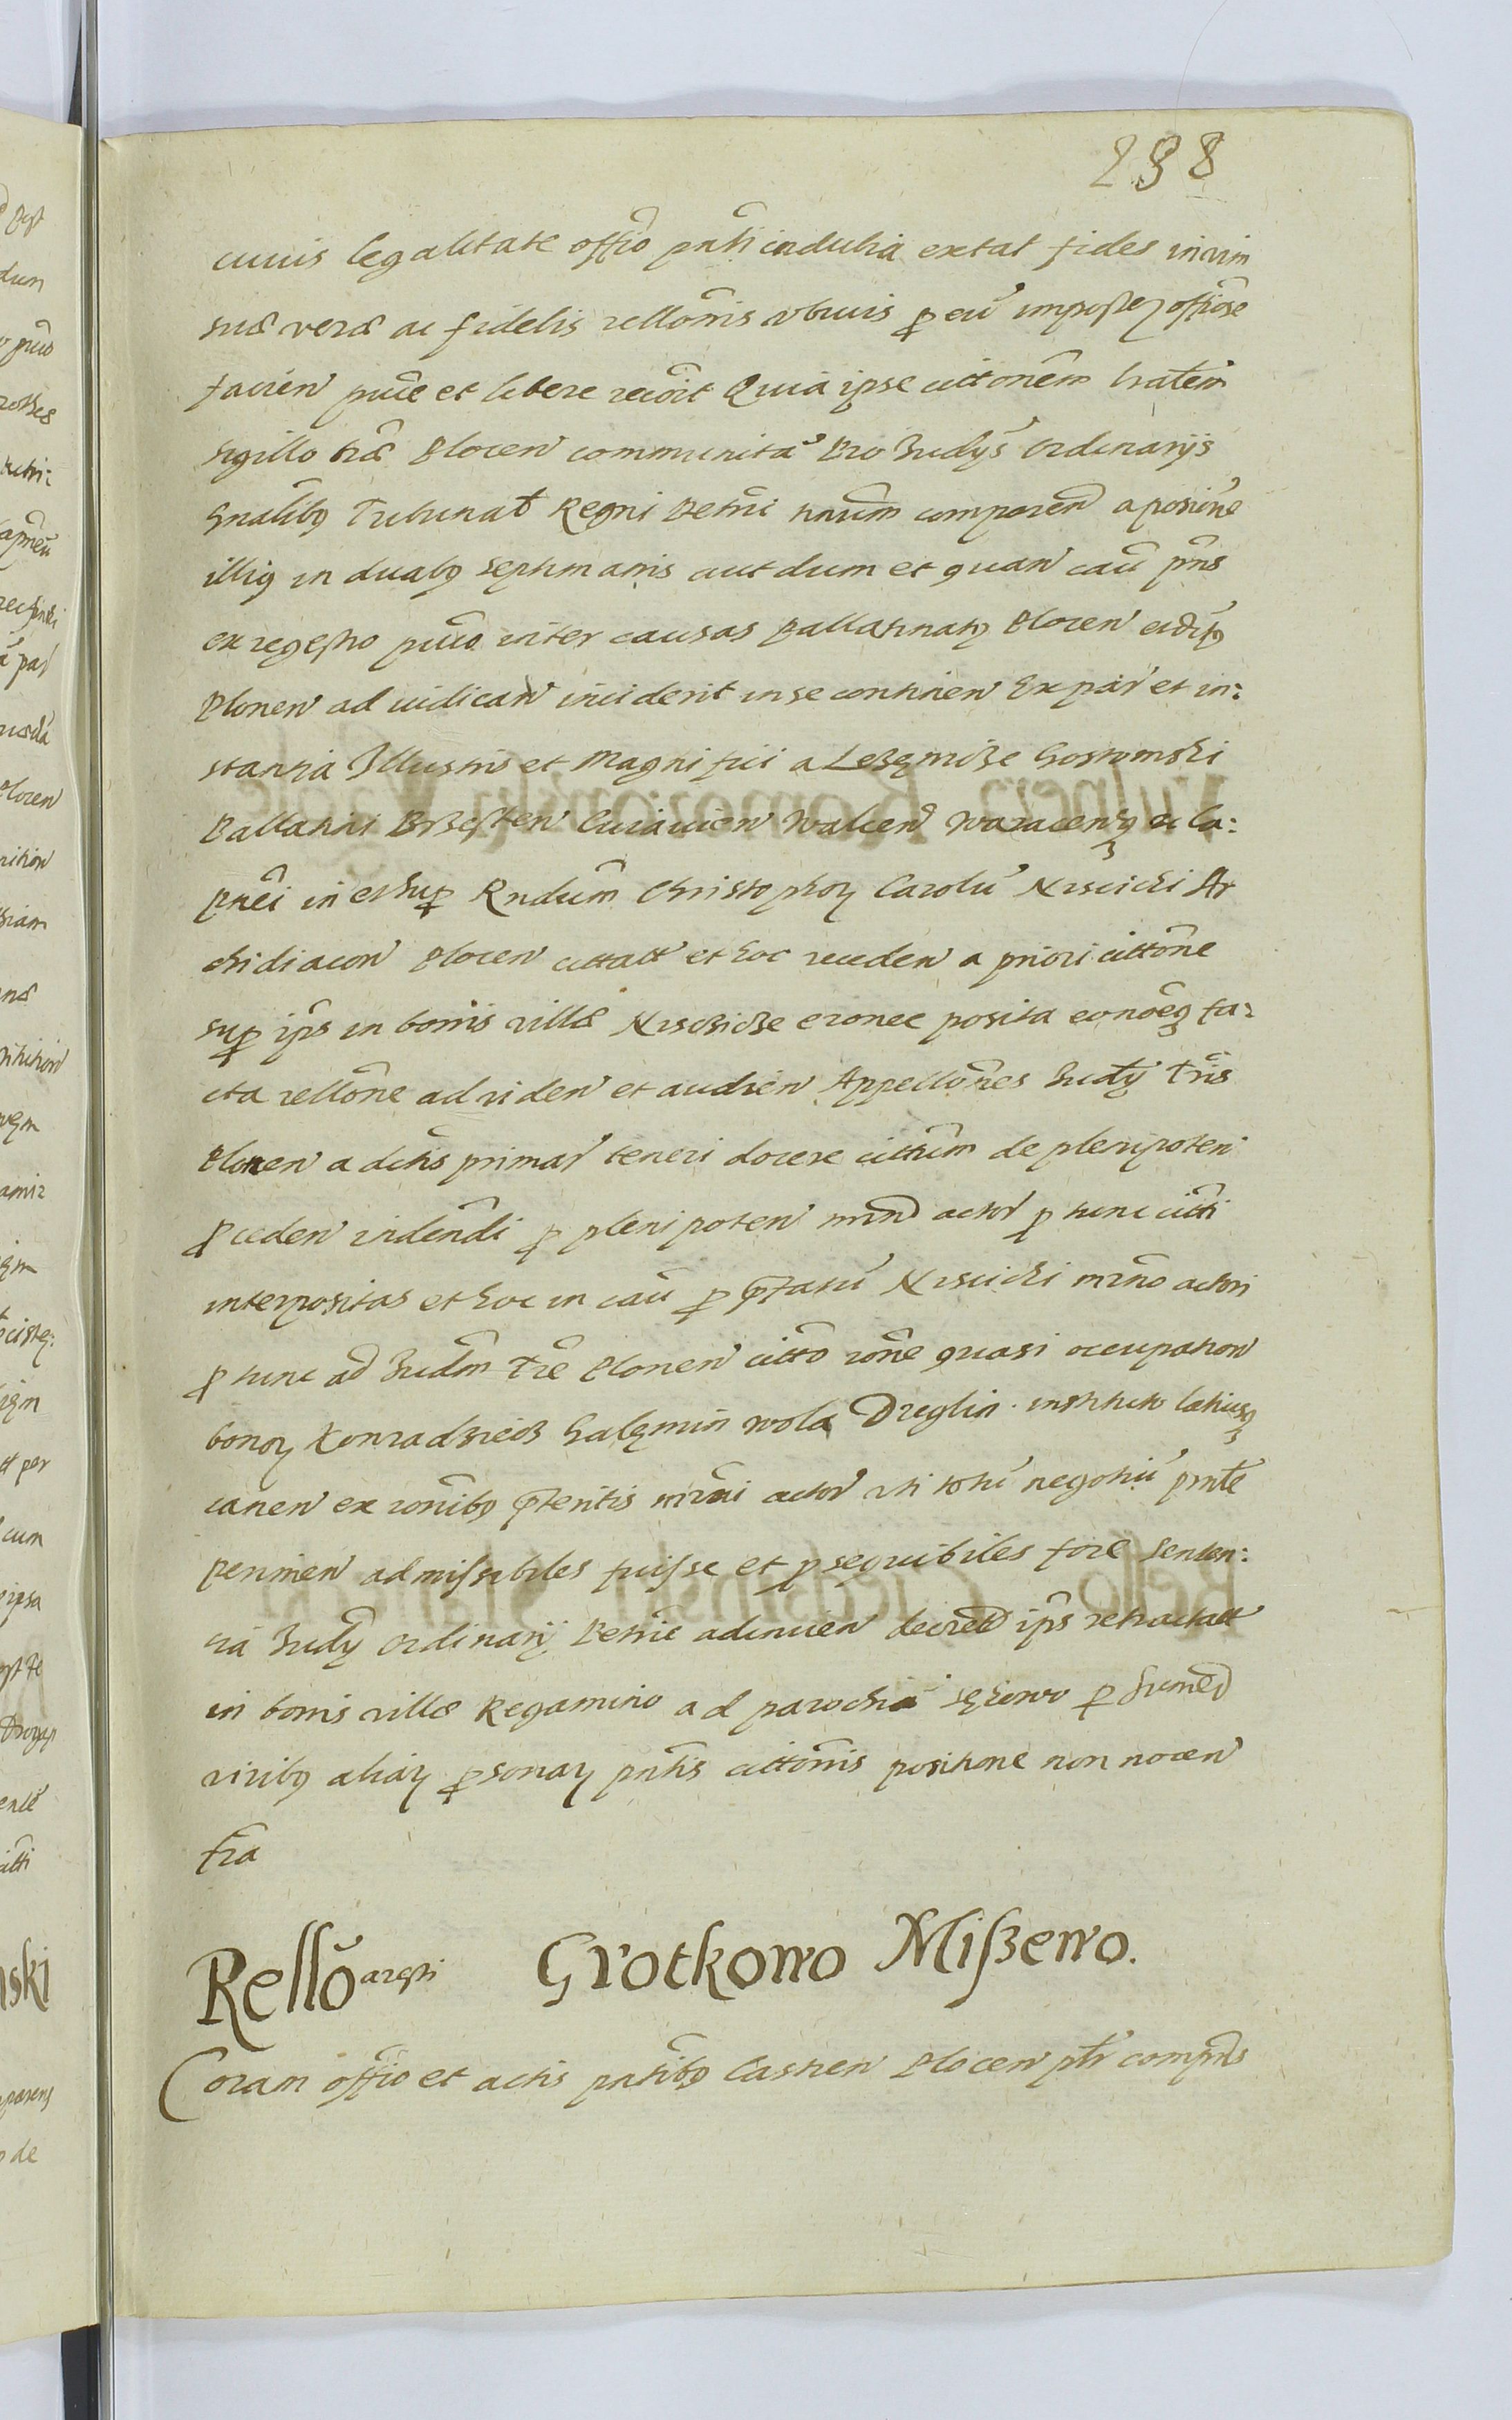 298
cuius legalitate offio pnti indubia extat fides in vim
suæ veræ ac fidelis rellonis obuis p eu imposter offiose
facien pure et libere recoit Quia ipse cittonem tratem
sigillo træ Plocen communita Pro Judys Ordinarijs
Gnalibq Tribunat Regni Petrni trnum comparen a positine
illiq in duabq septimanis aut dum et quan cau pns
ex regestro puo inter causas pallatinatq Plocen eidq
Plonen ad iudican inciderit in se continen Ex par et in:
stantia Illustris et Magnifici a Lezenicze Gostomski
Pallatini Brzesten Cuiauien Walcen Waracenq et ca:
pnei in et sup Rndum Christophor Carolu Nisciczki Ar
chidiacon Plocen cittatt et hoc receden a priori cittone
sup ips in bonis villæ Nisczicze eronee posita eonoeq fa:
cta rellone ad viden et audien Appellones Judy Tris
Plonen a dctis primar teneri docere cittum de plenipoten
pceden indendi p plenipoten mrnd actor p tunc citti
interpositas et hoc in cau p ptatu Niscicki mrno actori
p tunc ad Judm Tre Plonen citto rone quasi occupation
bonor Konradzicz Galemin Wola Dreglin instituto latiusq
canen ex ronibq pteritis mrni actor uti totu negotiu pnte
perimen admissibiles fuisse et psequibiles fore senten:
tia Judy Ordinarij Petrie adinuen decretd ips retractatt
in bonis villæ Rogamino ad parochia p Jumed
viribq aliar psonar pntis cittonis positione non nocen
tra
Rello aresti Grotkowo Mißewo.
Coram offio et actis pntibq Castren Plocen ptr comprns